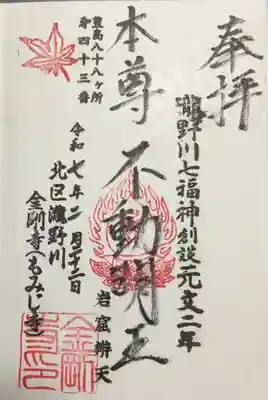 奉拝
瀧野川七福神創設元文二年
本尊 不動明王
岩窟辨天
豊島八十八ヶ所
第四十三番
令和七年二月二十二日
北区瀧野川
金剛寺(もみじ寺)